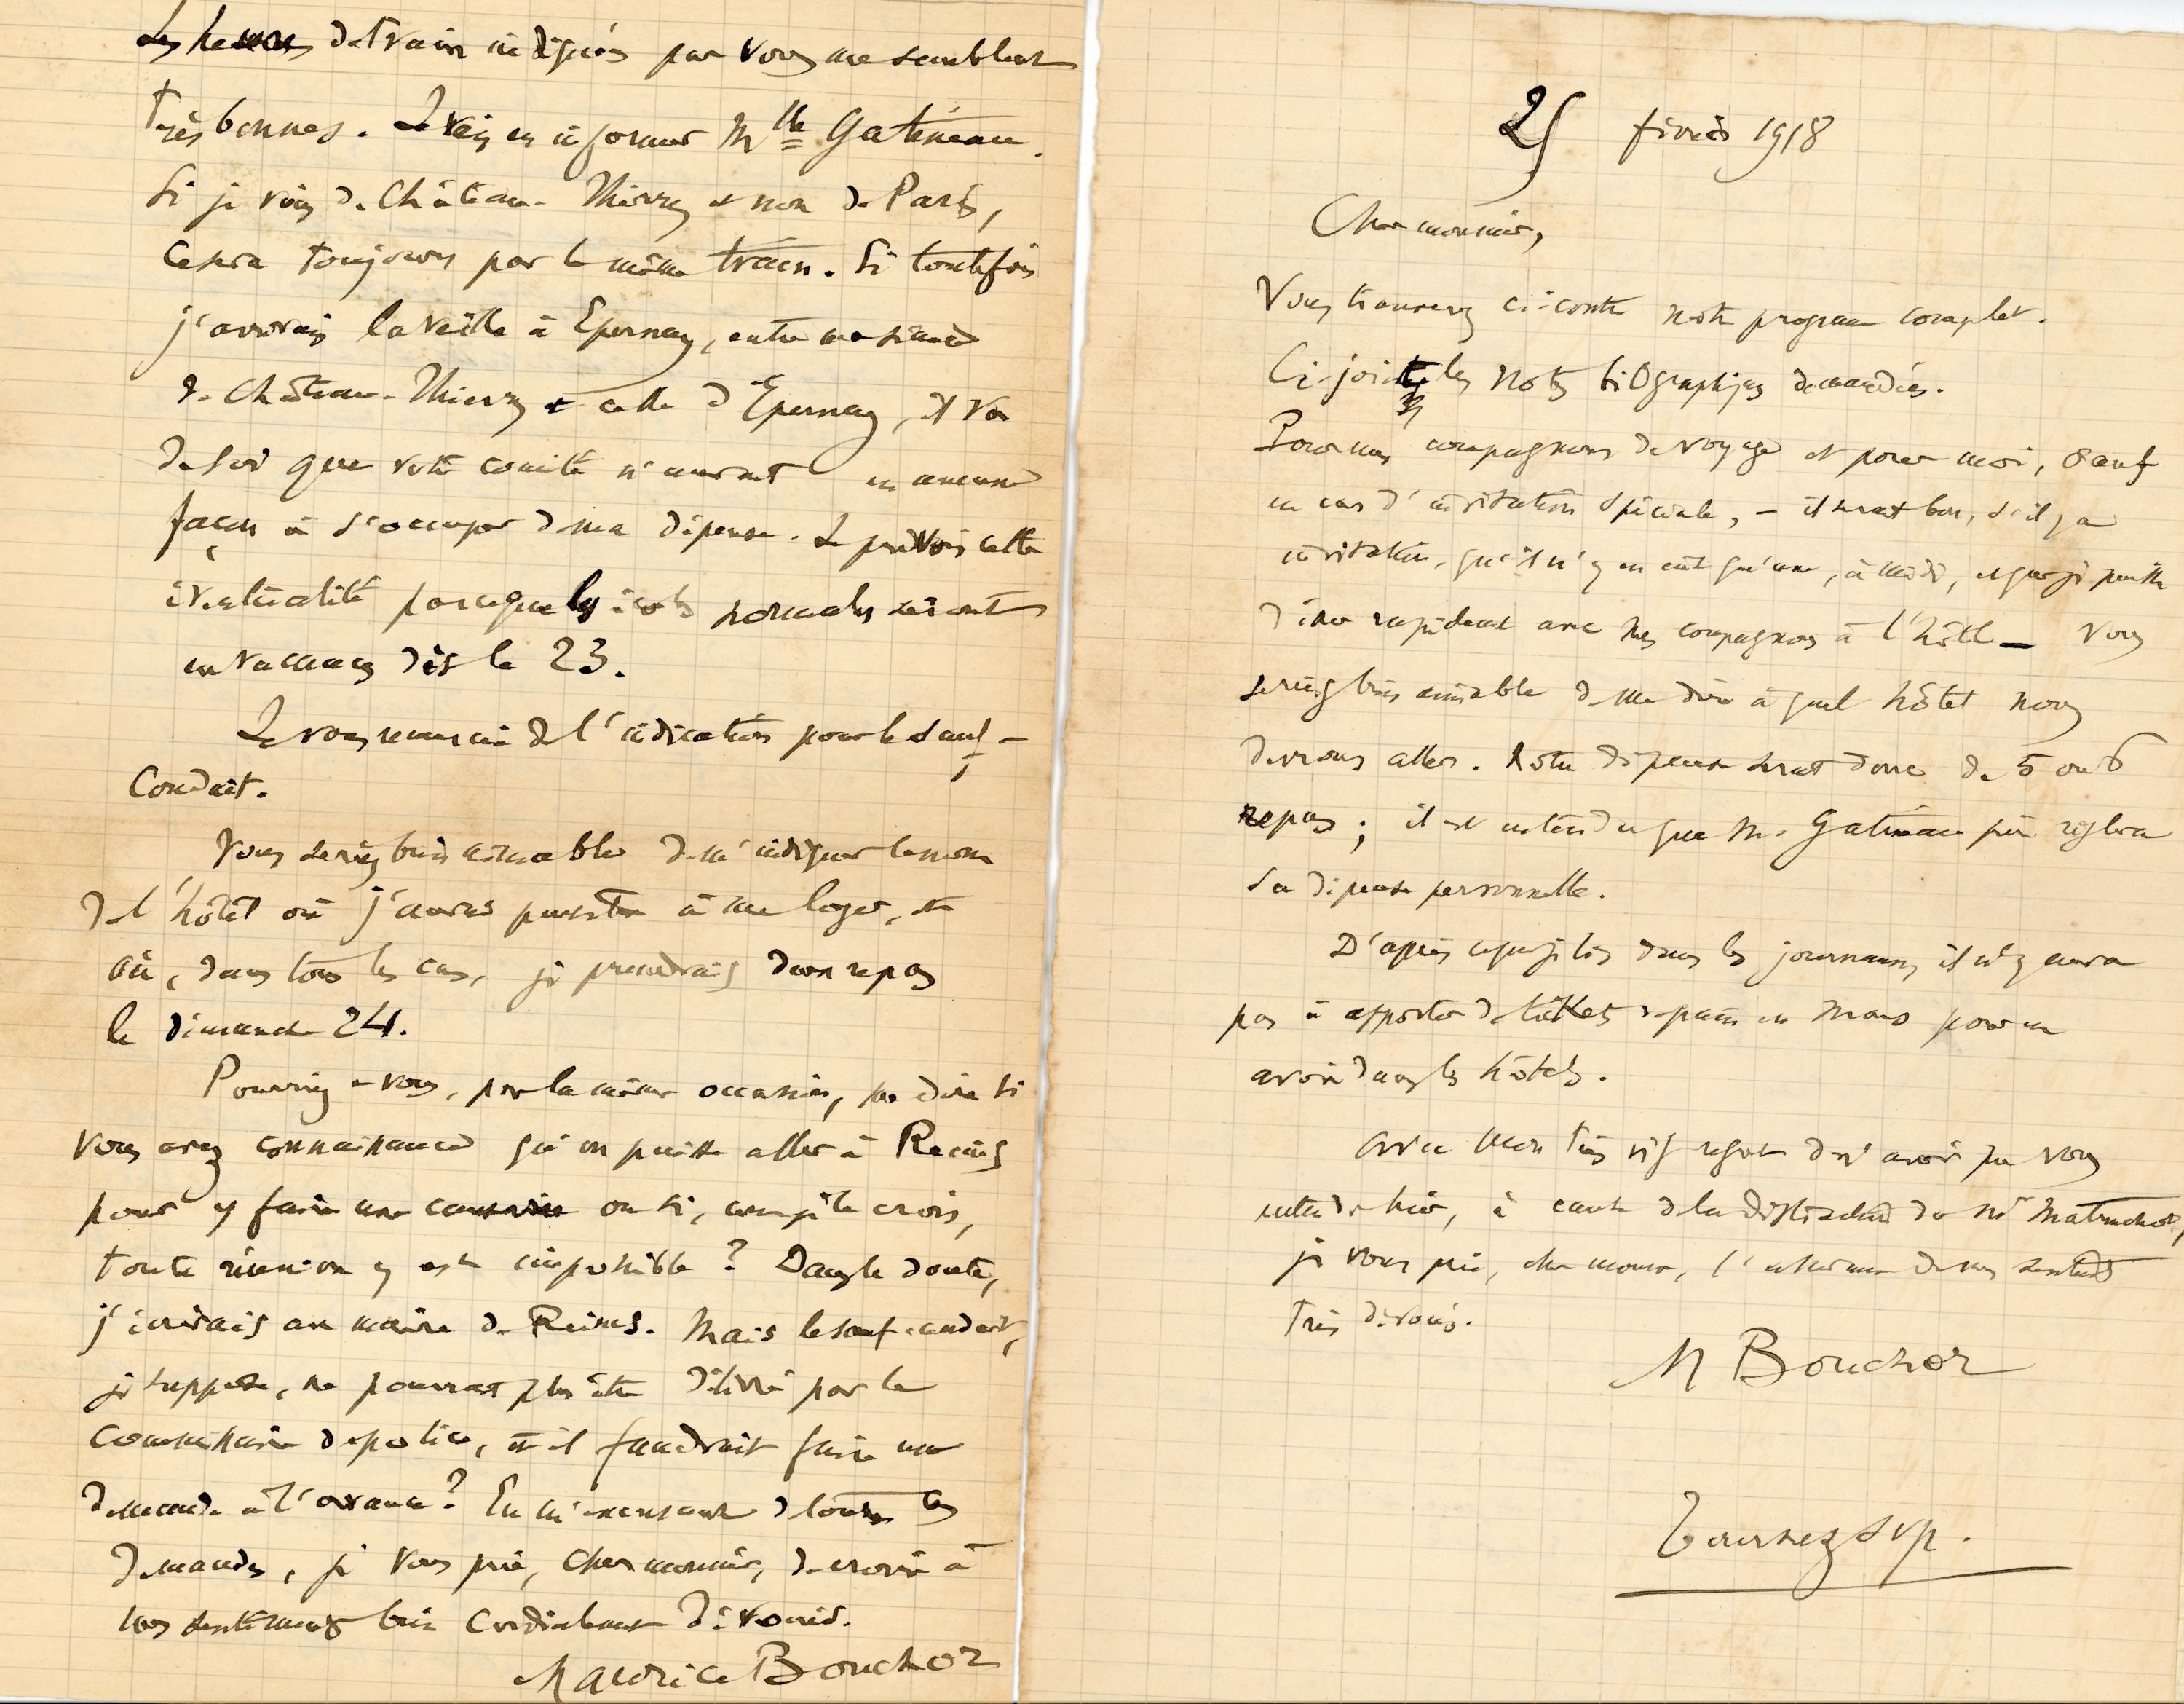 Les heures de train indiquées par vous me semblent
très bonnes. Je vais en informer Mlle Gatineau.
Si je viens de Château-Thierry et non de Paris,
ce sera toujours par le même train. Si toutefois
j'arrivais la veille à Epernay, entre ma séance
de Château-Thierry et celle d'Epernay, il va
de soi que votre comité n'aurait en aucune
façon à s'occuper de ma dépense. Je prévois cette
éventualité parce que les écoles normales seront
en vacances dès le 23.
Je vous remercie de l'indication pour le sauf-
conduit.
Vous seriez bien aimable de m'indiquer le nom
de l'hôtel où j'aurais peut-être à me loger, et
où, dans tous les cas, je prendrais deux repas
le dimanche 24.
Pourriez-vous, par la même occasion, me dire si
vous avez connaissance qu'on puisse aller à Reims
pour y faire une causerie ou si, comme je le crois,
toute réunion y est impossible ? Dans le doute,
j'écrirais au maire de Reims. Mais le sauf-conduit,
je suppose, ne pourrait plus être délivré par le
commissaire de police, et il faudrait faire une
demande à l'avance ? En m'excusant de toutes ces
demandes, je vous prie, cher monsieur, de croire à
mes sentiments bien cordialement dévoués.
Maurice Bouchor
25 février 1918
Cher monsieur,
Vous trouverez ci-contre notre programme complet.
Ci-joint les notes biographiques demandées.
Pour mes compagnons de voyage et pour moi, sauf
en cas d'invitation spéciale, – il serait bon, s'il y a
invitation, qu'il n'y en eût qu'une, à midi, et que je puisse
dîner rapidement avec mes compagnons à l'hôtel – Vous
seriez bien aimable de me dire à quel hôtel nous
devrons aller. Notre dépense serait donc de 5 ou 6
repas ; il est entendu que M. Gatineau père réglera
sa dépense personnelle.
D'après ce que je lis dans les journaux, il n'y aura
pas à apporter de tickets de pain en mars pour en
avoir dans les hôtels.
Avec mon très vif regret de n'avoir pu vous
entendre hier, à cause de la de Mr Matruchot,
je vous prie, cher monsieur, l'assurance de mes sentiments
très dévoués.
M Bouchor
Tournez svp.